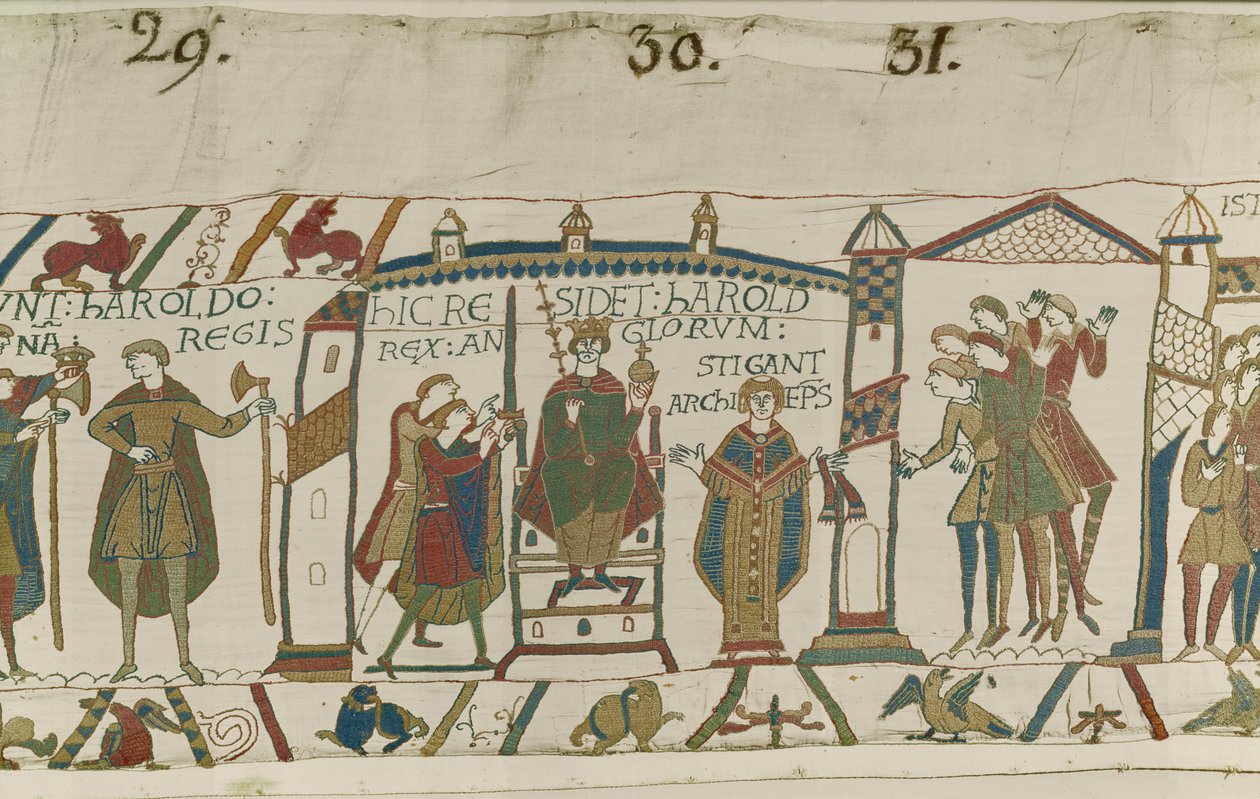 29.
30.
31.
VNT: hAROLDO:
NA: REGIS
hIC RE SIDET: hAROLD
REX: AN GLORVM:
STIGANT
ARChI EPS
IST